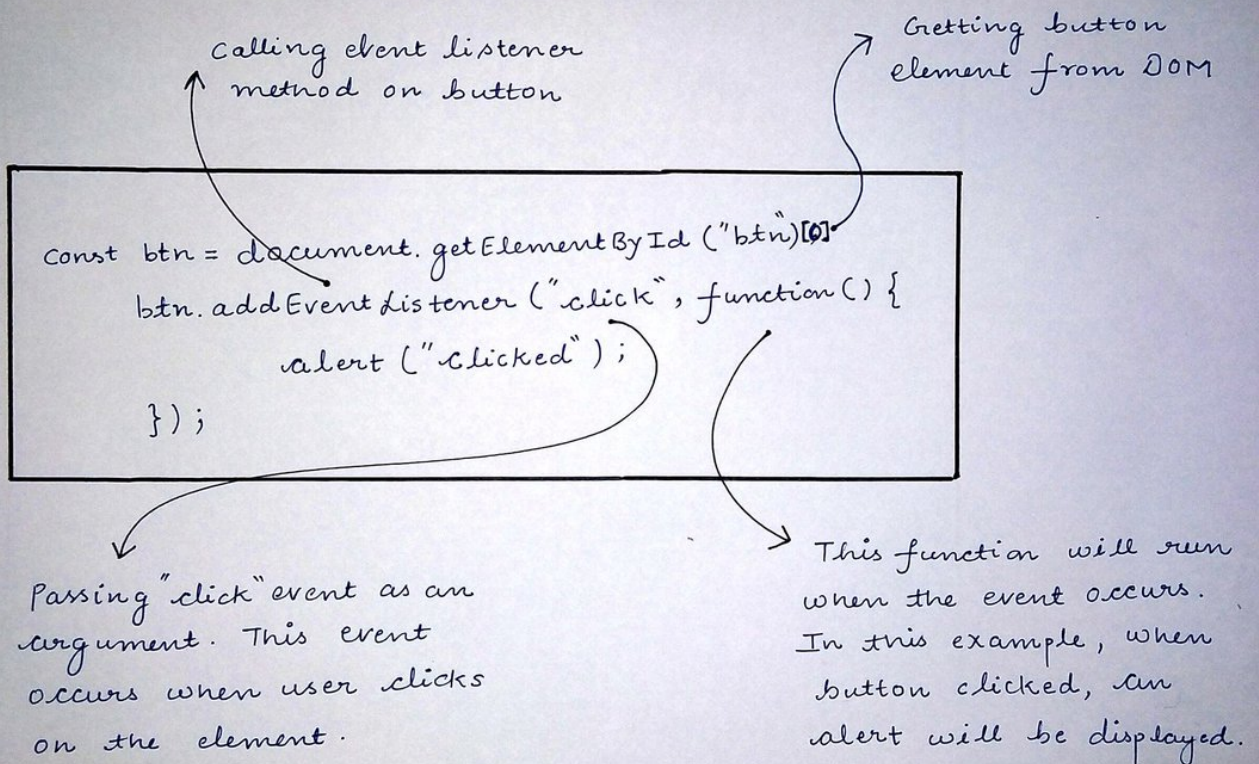 Calling event listener
method on button
Getting button
element from DOM
const btn = document.getElementById ("btn")[0]
btn.addEventListener ("click", function() {
alert ("clicked");
});
Passing "click" event as an
argument. This event
occurs when user clicks
on the element.
This function will run
when the event occurs.
In this example, when
button clicked, an
alert will be displayed.